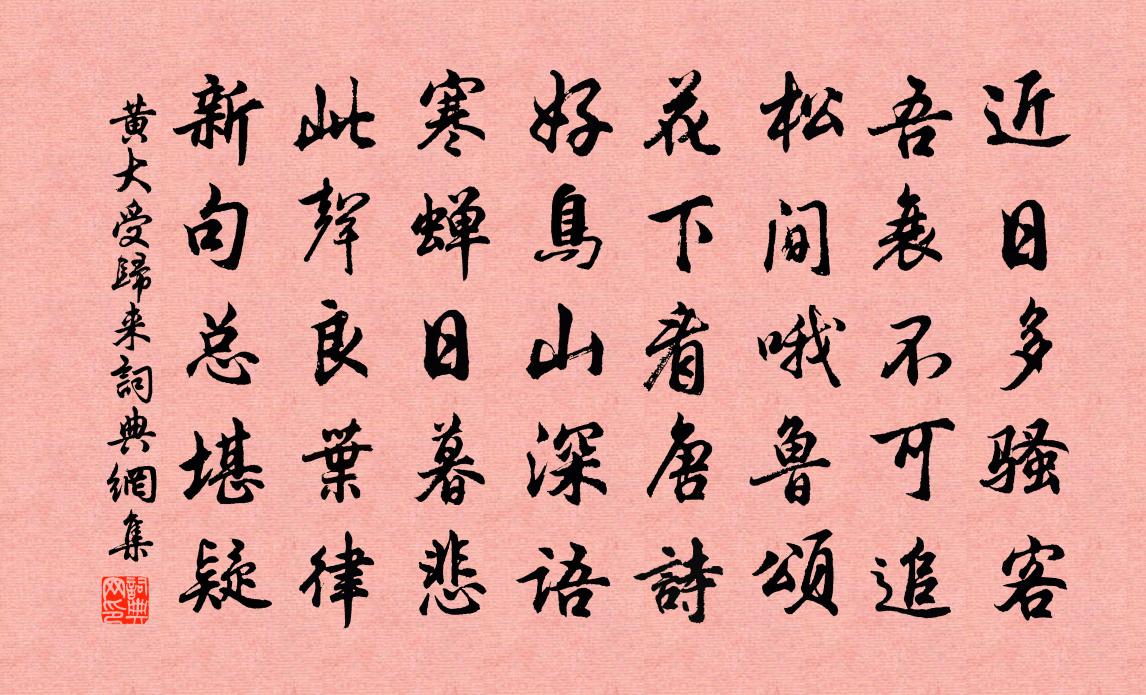 近日多骚客
吾衰不可追
松间哦鲁頌
花下看唐詩
好鳥山深语
寒蝉日暮悲
此聲良葉律
新句总堪疑
黄大受歸来詞典網集
詞典网印